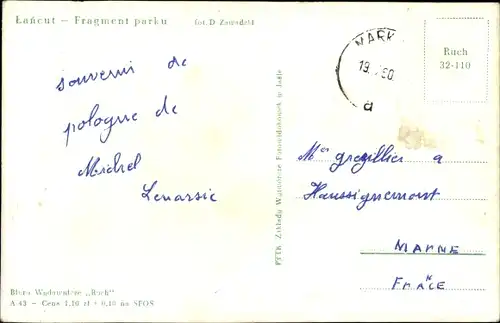 Łańcut — Fragment parku
fot. D Zawadzki
souvenir de
pologne de
Michel
Lenarsic
MARK
19. 60.
a
Ruch
32-110
PTTK Zakłady Wytwórcze Fotowidokówek w Jaśle
Mrs gregillier a
Haussignemont
MARNE
FRANCE
Biuro Wydawnicze „Ruch”
A 43 — Cena 1,10 zł + 0,10 na SFOS